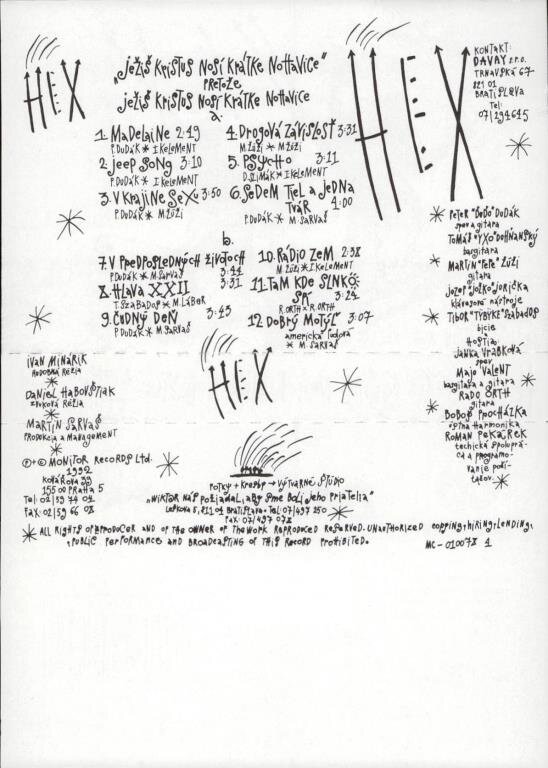 HEX
„JEŽIŠ KRISTUS NOSÍ KRÁTKE NOHAVICE"
PRETOŽE
JEŽIŠ KRISTUS NOSÍ KRÁTKE NOHAVICE
a.
1. MADELAINE 2:49
P. DUDÁK * I KELEMENT
2. JEEP SONG 3:10
P. DUDÁK * I KELEMENT
3. V KRAJINE SEXU 3:50
P. DUDÁK * M. ŽÚŽI
4. DROGOVÁ ZÁVISLOSŤ 3:31
M. ŽÚŽI * M. ŽÚŽI
5. PSYCHO 3:11
D. SIMÁK * I KELEMENT
6. SEDEM TIEL A JEDNA
TVÁR 4:00
P. DUDÁK * M. SARVAŠ
b.
7. V PREDPOSLEDNÝCH ŽIVOTOCH
P. DUDÁK * M. SARVAŠ 3:44
8. HLAVA XXII 3:31
T. SZABADOS * M. LÁBER
9. ČUDNÝ DEŇ 3:43
P. DUDÁK * M. SARVAŠ
10. RÁDIO ZEM 2:38
M. ŽÚŽI * I KELEMENT
11. TAM KDE SLNKO
SA 3:24
R. ORTH * R. ORTH
12. DOBRÝ MOTÝĽ 3:07
americká ľudová
* M. SARVAŠ
HEX
KONTAKT:
DAVAY s.r.o.
TRNAVSKÁ 67
821 01
BRATISLAVA
Tel:
07/294615
PETER "BOĎO" DUDÁK
spev a gitara
TOMÁŠ "YXO" DOHŇANSKÝ
basgitara
MARTIN "PEPE" ŽÚŽI
gitara
JOZEF "JOŽKO" JORÍČKA
klávesové nástroje
TIBOR "TYBYKE" SZABADOS
bicie
HOSTIA:
JANKA VRABKOVÁ
spev
MAJO VALENT
basgitara a gitara
RADO ORTH
gitara
BOBOŠ PROCHÁZKA
ústna harmonika
ROMAN PEKÁREK
technická spoluprá-
ca a programo-
vanie počí-
tačov
HEX
IVAN MINÁRIK
HUDOBNÁ RÉŽIA
DANIEL HABOVŠTIAK
ZVUKOVÁ RÉŽIA
MARTIN SARVAŠ
PRODUKCIA A MANAGEMENT
℗+© MONITOR RECORDS Ltd.
1992
KOVÁŘOVA 39
155 00 PRAHA 5
Tel: 02/59 74 04
FAX: 02/59 66 08
FOTKY + KRESBY → VÝTVARNÉ ŠTÚDIO
„WIKTOR NÁS POŽIADAL, ABY SME BOLI JEHO PRIATELIA"
LEŠKOVA 5, 811 04 BRATISLAVA • Tel: 07/497 250
FAX: 07/497 078
ALL RIGHTS OF PRODUCER AND OF THE OWNER OF THE WORK REPRODUCED RESERVED. UNAUTHORIZED COPYING, HIRING, LENDING,
PUBLIC PERFORMANCE AND BROADCASTING OF THIS RECORD PROHIBITED.
MC – 010078 1